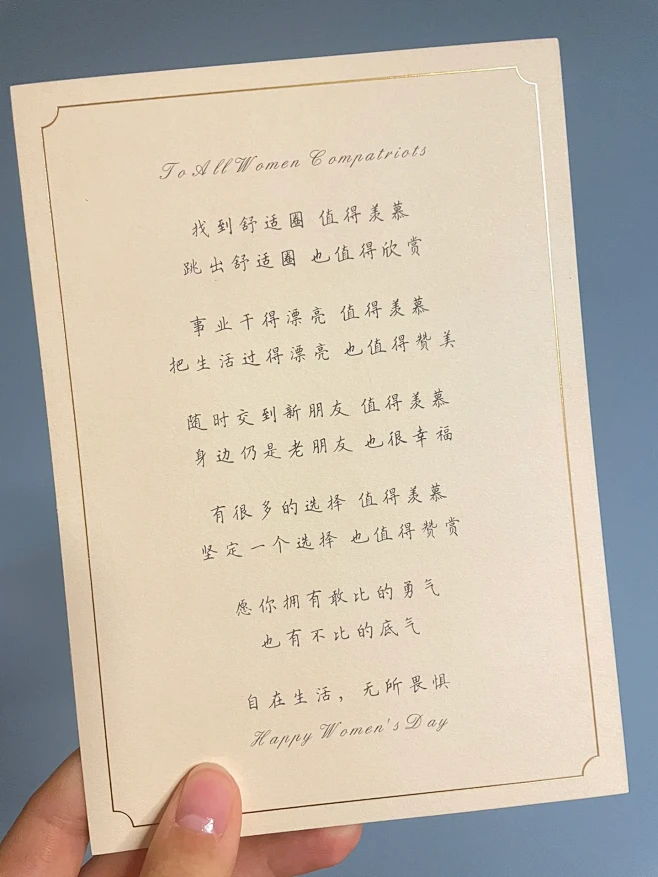 To All Women Compatriots
找到舒适圈 值得羡慕
跳出舒适圈 也值得欣赏
事业干得漂亮 值得羡慕
把生活过得漂亮 也值得赞美
随时交到新朋友 值得羡慕
身边仍是老朋友 也很幸福
有很多的选择 值得羡慕
坚定一个选择 也值得赞赏
愿你拥有敢比的勇气
也有不比的底气
自在生活，无所畏惧
Happy Women's Day